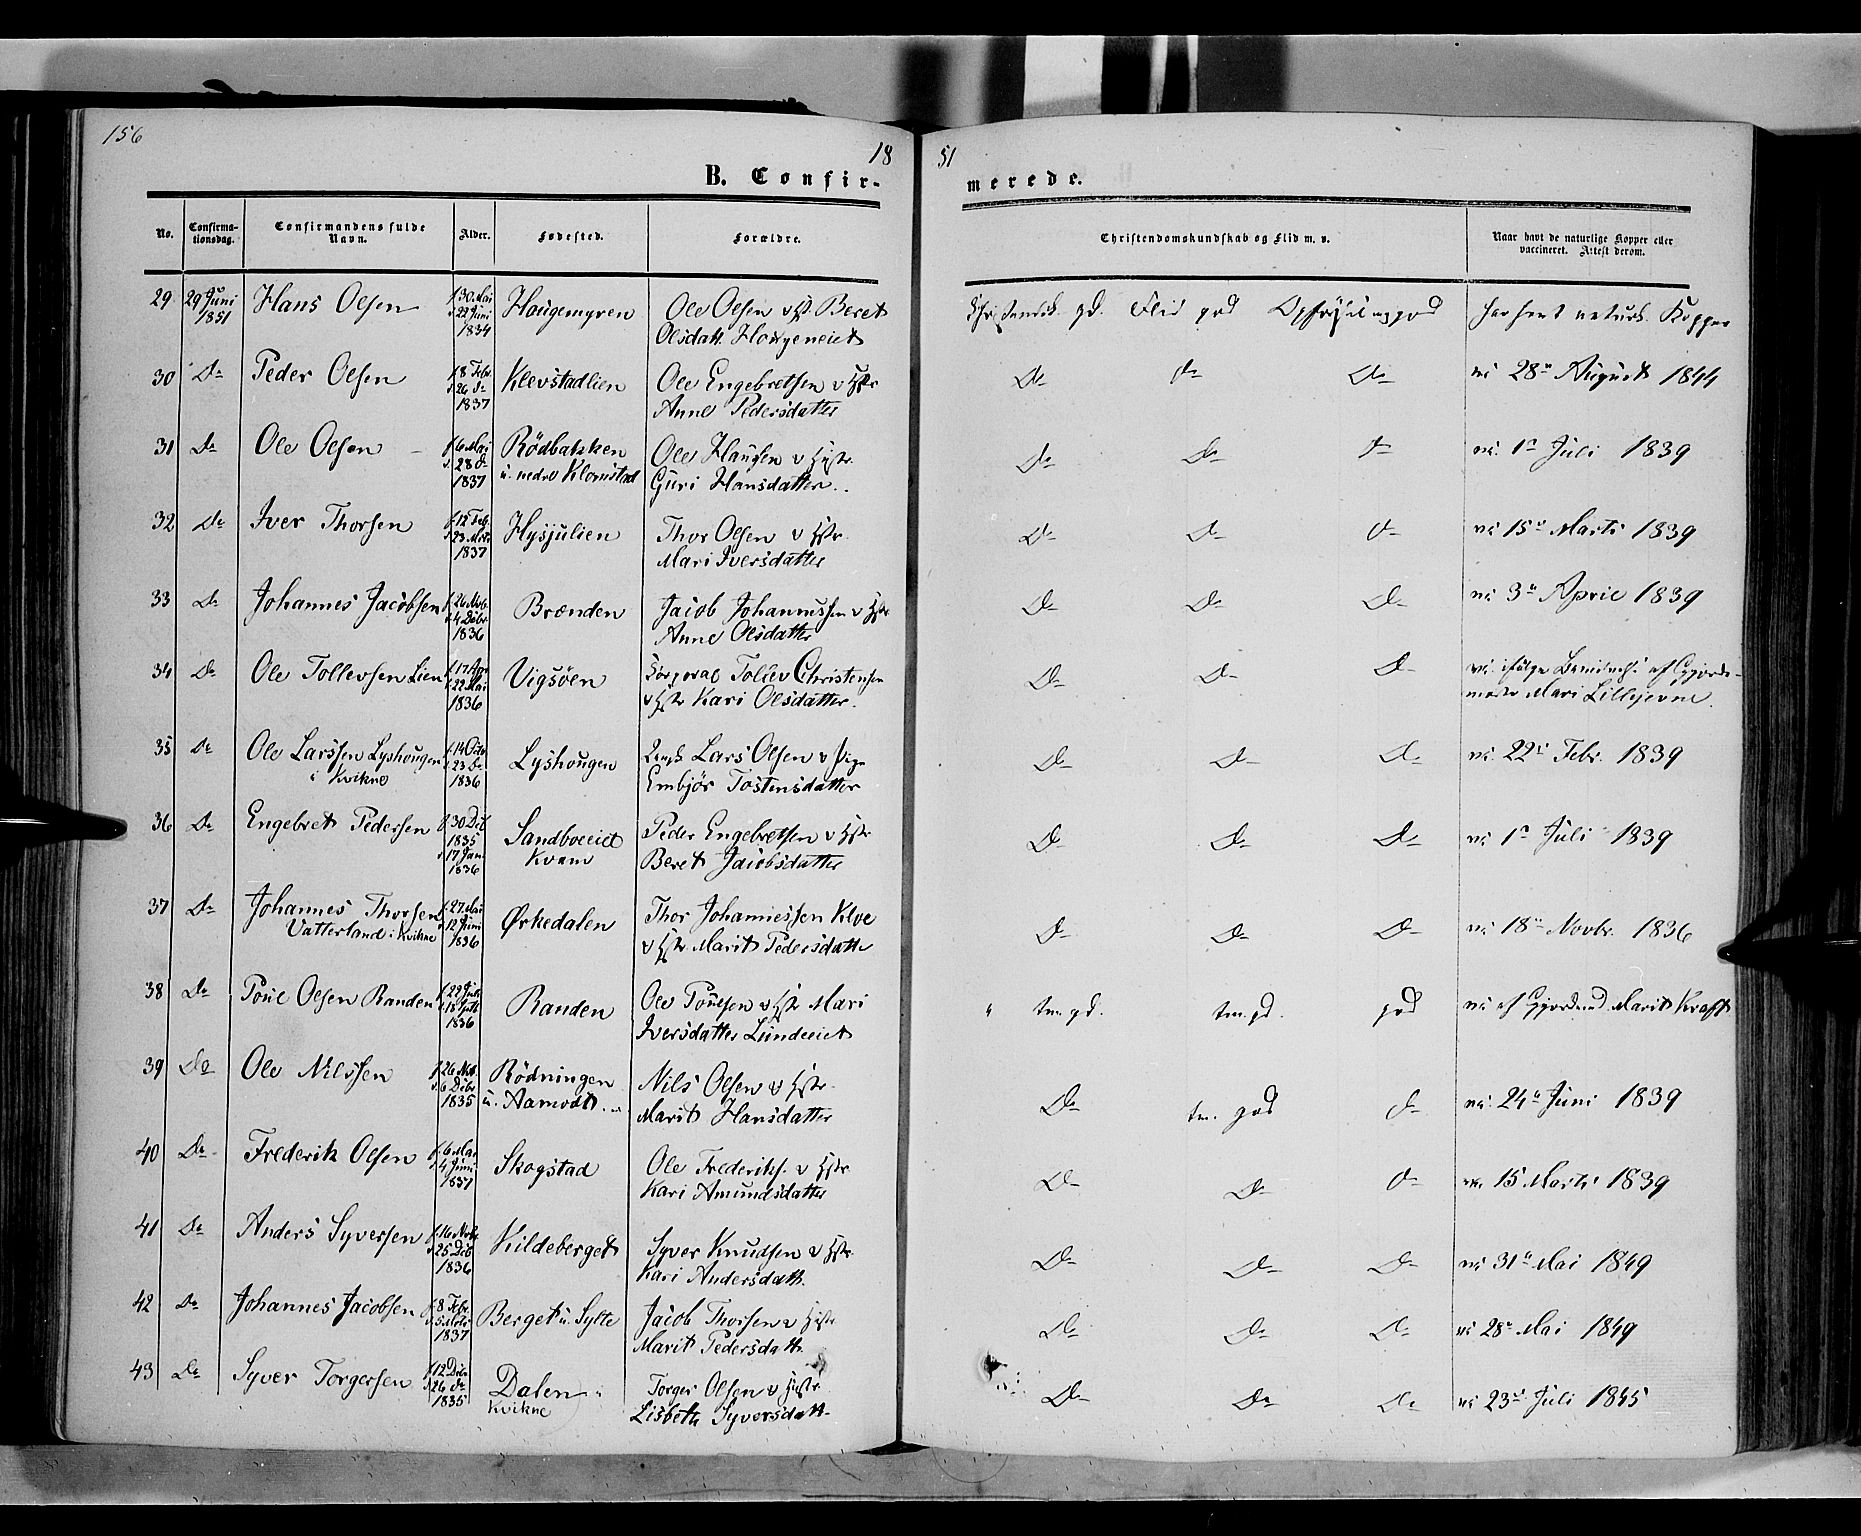 156
18
51
B. Confir-
merede.
No.
Confirma-
tionsdag.
Confirmandens fulde
Navn.
Alder.
Fødested.
Forældre.
Christendomskundskab og Flid m. v.
Naar havt de naturlige Kopper eller
vaccineret. Attest derom.
29 29 Juni 1851 Hans Olsen f 30 Mai d 22 Juni 1834 Haugemyren Ole Olsen v Hst. Beret
Olsdatt. Haugeneiet
Flid god har havt naturl. Kopper
30 Do Peder Olsen f 8 Febr. d 26 do 1837 Klevstadlien Ole Engebretsen v Hstr
Anne Pedersdatter
Do do Do vac 28de August 1844
31 Do Ole Olsen f 6 Mai d 28 do 1837 Rödbakken
u. nedre Klomstad
Ole Hansen v Hstr.
Guri Hansdatter
Do Do do vac. 1ste Juli 1839
32 Do Iver Thorsen f 12 Feb. d 23 1837 Hysjulien Thor Olsen v Hstr.
Mari Iversdatter
Do Do do vac 15de Marts 1839
33 Do Johannes Jacobsen f 26 Nvb. d 4 Debr 1836 Brænden Jacob Johannessen v Hstr
Anne Olsdatter
Do Do Do vac 3de April 1839
34 Do Ole Tollevsen Lien f 17 Apr d 22 Mai 1836 Vigsöen Corporal Tollev Christensen
v Hstr Kari Olsdatter.
Do Do Do vac. ifölge af Gjorde-
moder Mari Lillejevne.
35 Do Ole Larssen Lyshougen
i Kvikne
f 14 Octr d 23 Do 1836 Lyshougen Lars Olsen v Pige
Embjör Tostensdatter
Do Do Do vac. 22de Febr. 1839
36 Do Engebret Pedersen f 30 Dcb 1835 d 17 Jan. 1836 Sandboeeiet
Kvam
Peder Engebretsen v Hstr
Beret Jacobsdatter
Do Do Do vac 1ste Juli 1839
37 Do Johannes Thorsen
Vatterland i Kvikne
f 27 Mai d 12 Juni 1836 Ørkedalen Thor Johannessen Kloe
v Hstr. Marit Pedersdatter
Do Do Do vac 18de Novbr. 1836
38 Do Poul Olsen Randen f 29 d 18 1836 Randen Ole Poulsen v Hstr Mari
Iversdatter Lundeeiet
" tm. gd. tm. gd. god vac af Gjordemd. Marit Kraft
39 Do Ole Nilssen f 26 Nvb. d 6 Debr 1835 Rödningen
u. Aamodt.
Nils Olsen v Hstr.
Marit Hansdatter
Do tm. god do vac. 24de Juni 1839
40 Do Frederik Olsen f 6 Mai d 4 Juni 1837 Skogstad Ole Frederiks. v Hstr.
Kari Amundsdatter
Do Do do vac. 15 Marts 1839
41 Do Anders Syversen f 16 Nvbr d 25 Dcb 1836 Kildeberget Syver Knudsen v Hstr.
Kari Andersdatt.
Do Do Do vac 31te Mai 1849
42 Do Johannes Jacobsen f 8 Febr. d 5 Marts 1837 Berget u. Sylte Jacob Thorsen v Hustr
Marit Pedersdatt.
Do Do Do vac 28de Mai 1849
43 Do Syver Torgersen f 12 Dcbr d 26 do 1835 Dalen i
Kvikne
Torger Olsen v Hustr
Lisbeth Syversdatt.
Do Do Do vac 23de Juli 1845